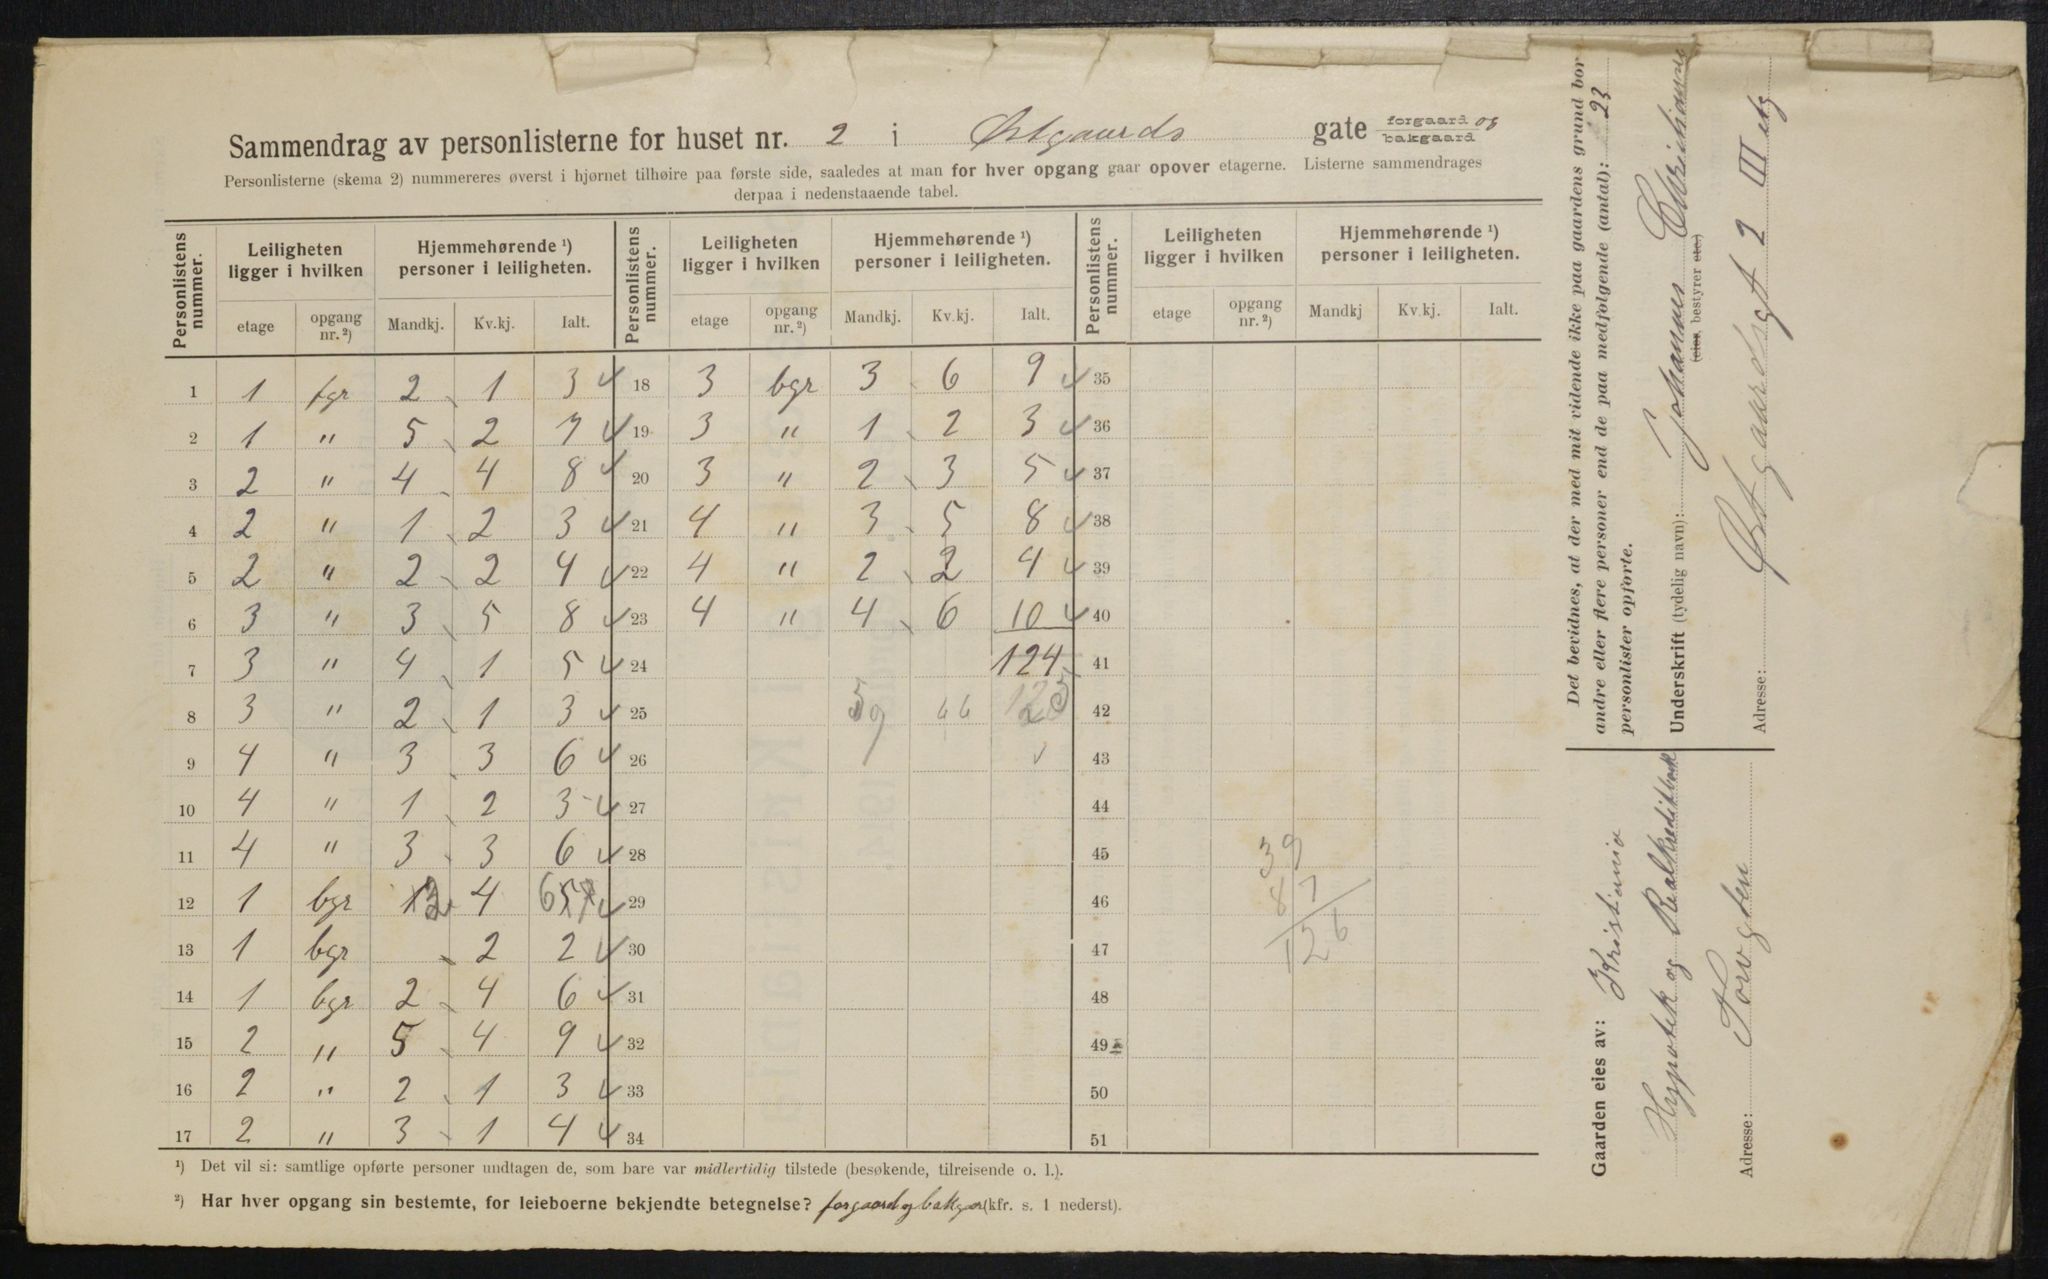 Sammendrag av personlisterne for huset nr. 2 i Østgaards gate forgaard og bakgaard
Personlisterne (skema 2) nummereres øverst i hjørnet tilhøire paa første side, saaledes at man for hver opgang gaar opover etagerne. Listerne sammendrages
derpaa i nedenstaaende tabel.
Personlistens nummer. Leiligheten ligger i hvilken Hjemmehørende ¹) personer i leiligheten. Personlistens nummer. Leiligheten ligger i hvilken Hjemmehørende ¹) personer i leiligheten. Personlistens nummer. Leiligheten ligger i hvilken Hjemmehørende ¹) personer i leiligheten.
etage opgang nr. ²) Mandkj. Kv.kj. Ialt. etage opgang nr. ²) Mandkj. Kv.kj. Ialt. etage opgang nr. ²) Mandkj Kv.kj. Ialt.
1 1 fgr 2 1 3 18 3 bgr 3 6 9 35
2 1 " 5 2 7 19 3 " 1 2 3 36
3 2 " 4 4 8 20 3 " 2 3 5 37
4 2 " 1 2 3 21 4 " 3 5 8 38
5 2 " 2 2 4 22 4 " 2 2 4 39
6 3 " 3 5 8 23 4 " 4 6 10 40
7 3 " 4 1 5 24 124 41
8 3 " 2 1 3 25 59 66 125 42
9 4 " 3 3 6 26 43
10 4 " 1 2 3 27 44
11 4 " 3 3 6 28 45 39
12 1 bgr 2 4 6 29 46 87
13 1 bgr 2 2 30 47 126
14 1 bgr 2 4 6 31 48
15 2 " 5 4 9 32 49
16 2 " 2 1 3 33 50
17 2 " 3 1 4 34 51
¹) Det vil si: samtlige opførte personer undtagen de, som bare var midlertidig tilstede (besøkende, tilreisende o. l.).
²) Har hver opgang sin bestemte, for leieboerne bekjendte betegnelse? forgaard og bakgar (kfr. s. 1 nederst).
Det bevidnes, at der med mit vidende ikke paa gaardens grund bor
andre eller flere personer end de paa medfølgende (antal): 23
personlister opførte.
Underskrift (tydelig navn): Johannes Christiansen
(eier, bestyrer etc.)
Adresse: Østgaardsgt 2 III etg
Gaarden eies av: Kristiania
Hypotek og Realkreditbank
Adresse: Torvgten